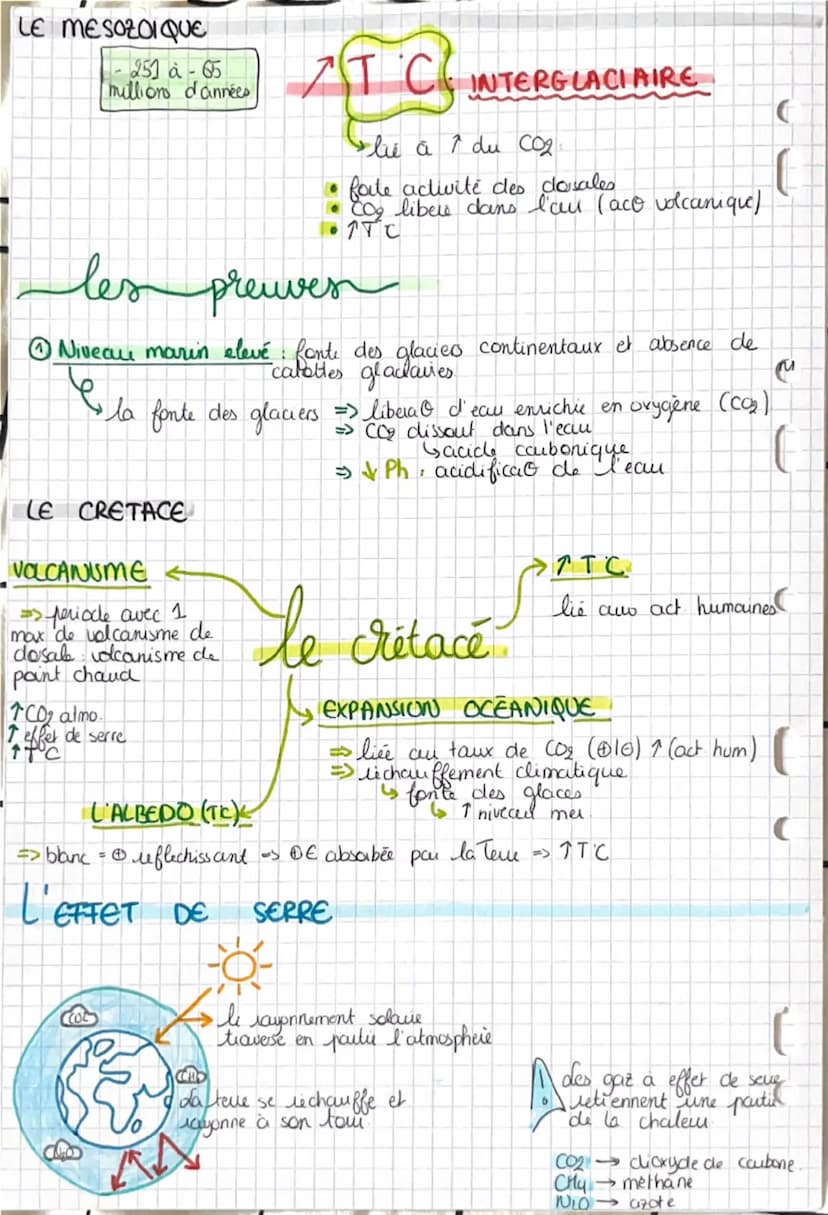 LE MESOZOIQUE
- 251 à - 65
millions d'années
↑ T°C : INTERGLACIAIRE
lié à ↑ du CO2
• forte activité des dorsales
• CO2 libéré dans l'eau (act volcanique)
• ↑T°C
les preuves
① Niveau marin élevé : fonte des glaciers continentaux et absence de
calottes glaciaires
la fonte des glaciers => liberat° d'eau enrichie en oxygène (CO2)
=> CO2 dissout dans l'eau
↳ acide carbonique
=> ↓ Ph : acidificat° de l'eau
LE CRETACE
VOLCANISME
=> periode avec 1
max de volcanisme de
dorsale : volcanisme de
point chaud
↑ CO2 atmo.
↑ effet de serre
↑ T°C
↑ T°C
lié aux act humaines
le crétacé
EXPANSION OCÉANIQUE
=> liée au taux de CO2 (⊕/⊖) ↑ (act hum)
=> réchauffement climatique
↳ fonte des glaces
↳ ↑ niveau mer
L'ALBEDO (T°C)
=> blanc = ⊕ réflechissant => ⊕E absorbée par la Terre => ↑T°C
L'EFFET DE SERRE
CO2
le rayonnement solaire
traverse en partie l'atmosphère
CH4
La terre se réchauffe et
rayonne à son tour
N2O
! des gaz à effet de serre
retiennent une partie
de la chaleur
CO2 → dioxyde de carbone
CH4 → méthane
N2O → azote